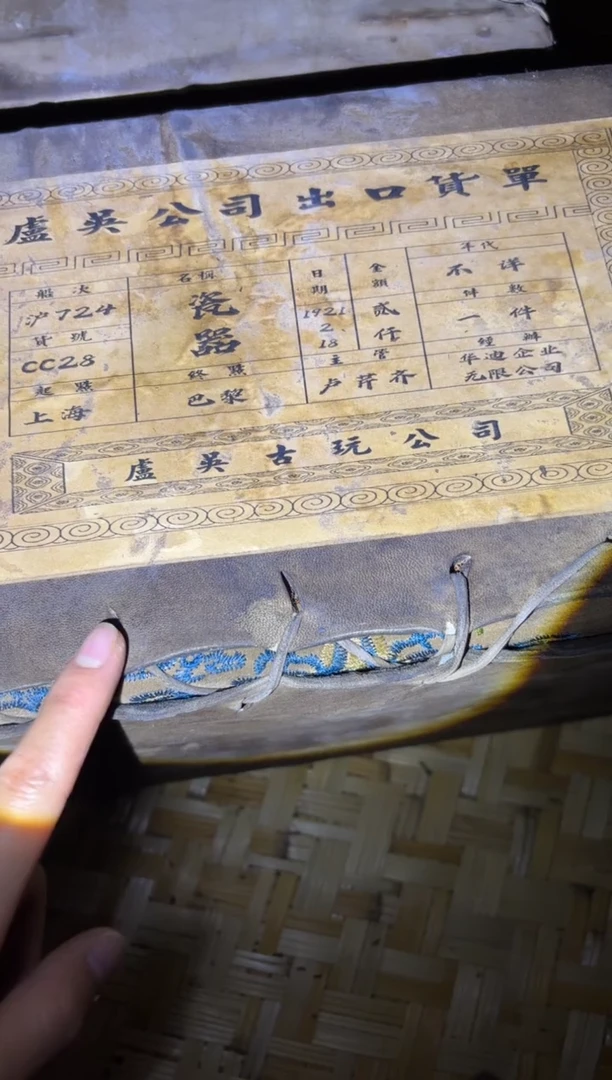 盧吳公司出口貨單
船次 名稱 日期 金額 年代
沪724 瓷器 1921 2 18 貳仟 不详
貨號 件数
CC28 一件
起點 終點 主管 經辦
上海 巴黎 卢芹齐 华迪企业无限公司
盧吳古玩公司